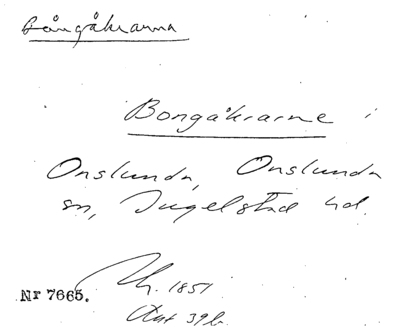 Bångåkrarna
Bongåkrarne i
Onslunda, Onslunda
sn, Ingelstad hd.
Nr 7665.
1851
Akt 39b.